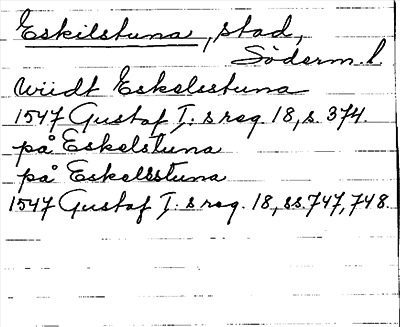 Eskilstuna, stad,
Söderm. l
wiidt Eskelsstuna
1547 Gustaf I:s reg. 18, s. 374.
på Eskelstuna
på Eskelsstuna
1547 Gustaf I:s reg. 18, ss. 747, 748.